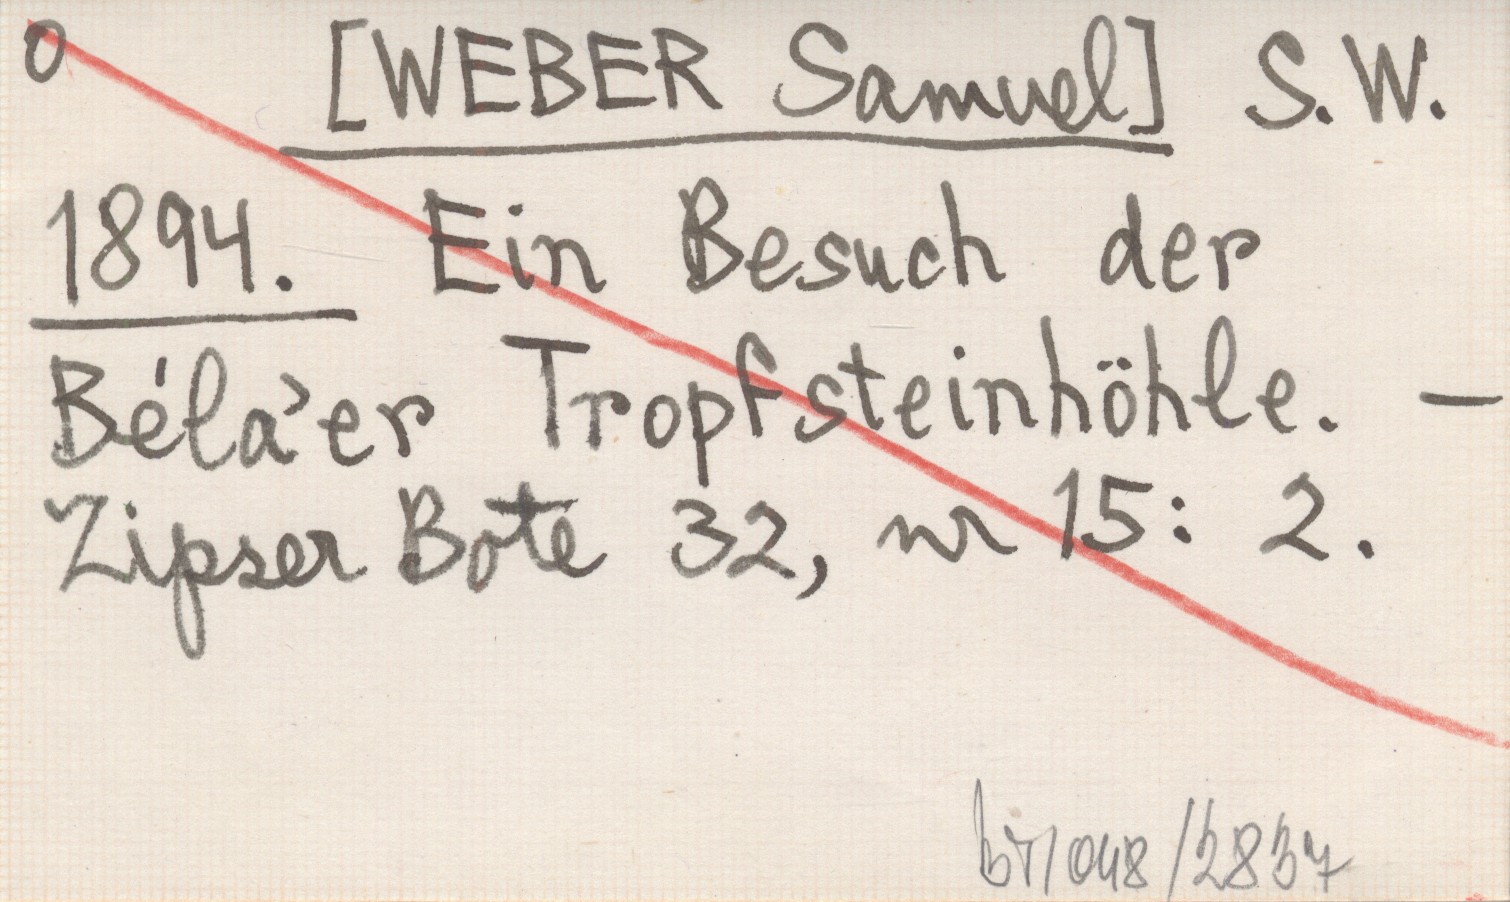 o [WEBER Samuel] S.W.
1894. Ein Besuch der
Béla'er Tropfsteinhöhle. —
Zipser Bote 32, nr 15: 2.